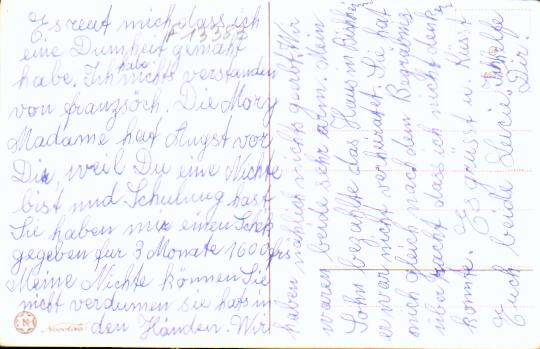 Es reut mich dass ich
eine Dumheit gemaht
habe. Ich habe nichts verstanden
von franzsöch. Die Mory
Madame hat Angst vor
Dir weil Du eine Nichte
bist und Schulung hast
Sie haben mir einen Schek
gegeben für 3 Monate 1600 frs
Meine Nichte können Sie
nicht verdumen sie hats in
den Händen. Wir
haben nählich nichts geerbt. Wir
waren beide sehr arm. Mein
Sohn bezahlte das Haus in
er war nicht verheiratet. Sie hat
mich gleich nach dem Begräbnes
überracht das ich nicht denken
konnte. Es grüsst u. Küsst
Euch beide Lucie. Ich helfe
Dir.
# 13387
N
Novolito